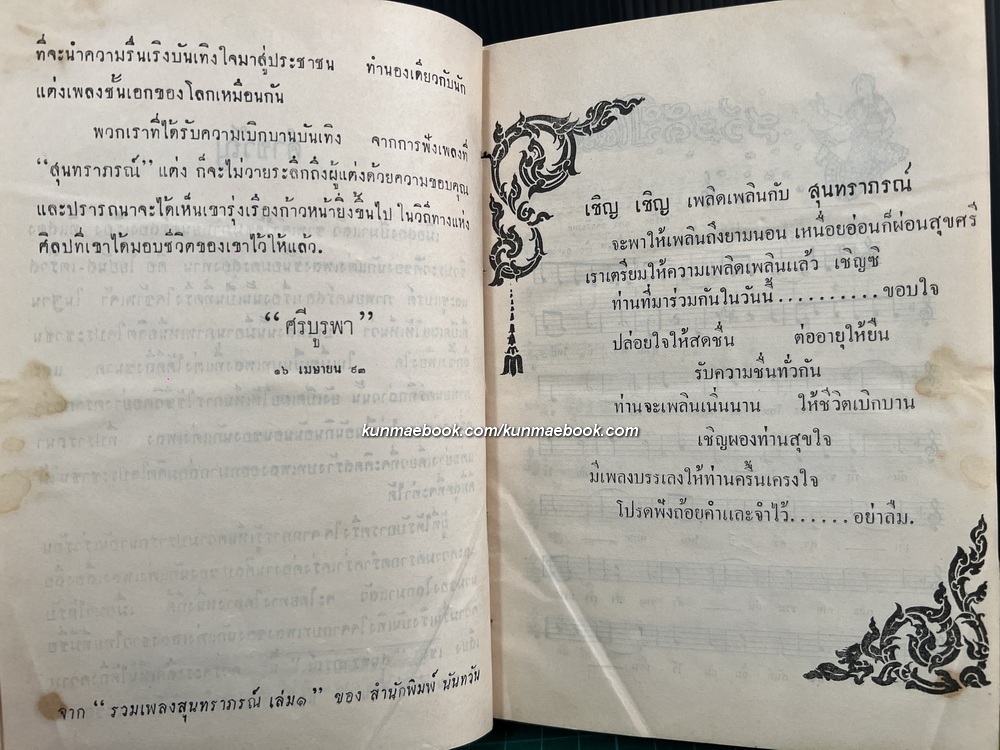 ที่จะนำความรื่นเริงบันเทิงใจมาสู่ประชาชน ทำนองเดียวกับนัก
แต่งเพลงชั้นเอกของโลกเหมือนกัน
พวกเราที่ได้รับความเบิกบานบันเทิง จากการฟังเพลงที่
“สุนทราภรณ์” แต่ง ก็จะไม่วายระลึกถึงผู้แต่งด้วยความขอบคุณ
และปรารถนาจะได้เห็นเขารุ่งเรืองก้าวหน้ายิ่งขึ้นไป ในวิถีทางแห่ง
ศิลปที่เขาได้มอบชีวิตของเขาไว้ให้แล้ว.
“ศรีบูรพา”
๑๖ เมษายน ๙๓
จาก “ รวมเพลงสุนทราภรณ์ เล่ม๑ ” ของ สำนักพิมพ์ นันทวัน
เชิญ เชิญ เพลิดเพลินกับ สุนทราภรณ์
จะพาให้เพลินถึงยามนอน เหนื่อยอ่อนก็ผ่อนสุขศรี
เราเตรียมให้ความเพลิดเพลินแล้ว เชิญซิ
ท่านที่มาร่วมกันในวันนี้..........ขอบใจ
ปล่อยใจให้สดชื่น ต่ออายุให้ยืน
รับความชื่นทั่วกัน
ท่านจะเพลินเนิ่นนาน ให้ชีวิตเบิกบาน
เชิญผองท่านสุขใจ
มีเพลงบรรเลงให้ท่านครื้นเครงใจ
โปรดฟังถ้อยคำและจำไว้......อย่าลืม.
kunmaebook.com/kunmaebook.com